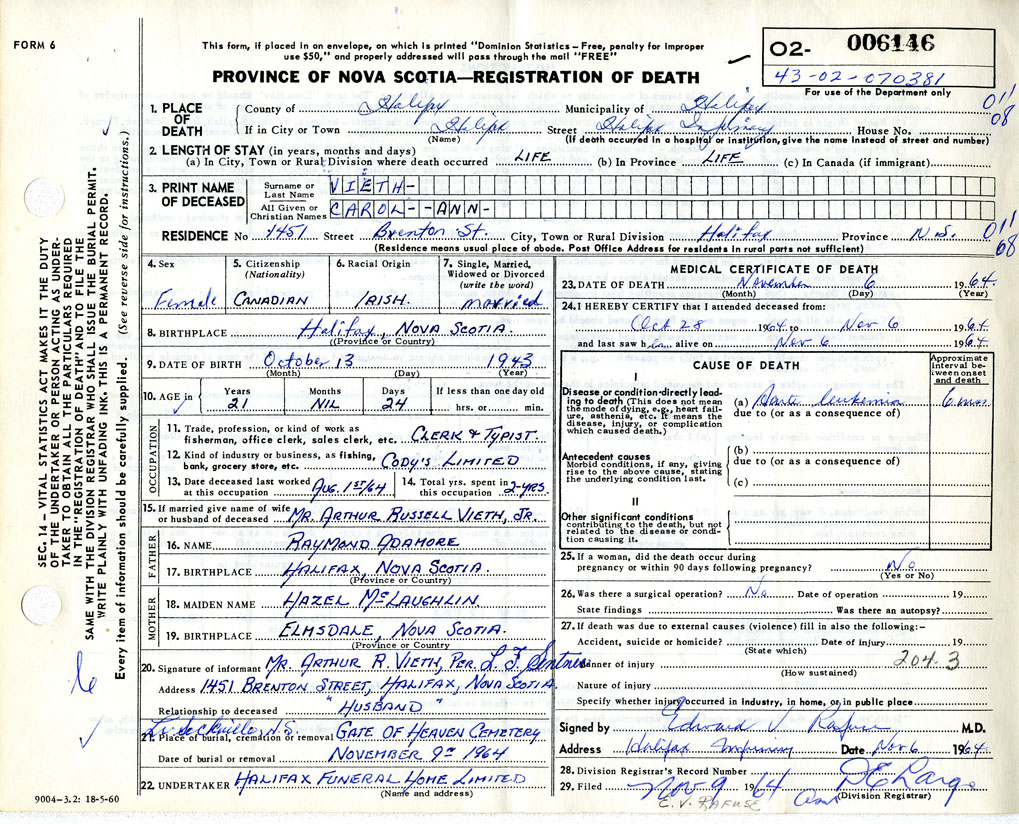 FORM 6
This form, if placed in an envelope, on which is printed "Dominion Statistics – Free, penalty for improper
use $50," and properly addressed will pass through the mail "FREE"
PROVINCE OF NOVA SCOTIA—REGISTRATION OF DEATH
02- 006146
43-02-070381
For use of the Department only
011
08
SEC. 14 – VITAL STATISTICS ACT MAKES IT THE DUTY
OF THE UNDERTAKER OR PERSON ACTING AS UNDER-
TAKER TO OBTAIN ALL THE PARTICULARS REQUIRED
IN THE "REGISTRATION OF DEATH" AND TO FILE THE
SAME WITH THE DIVISION REGISTRAR WHO SHALL ISSUE THE BURIAL PERMIT.
WRITE PLAINLY WITH UNFADING INK. THIS IS A PERMANENT RECORD.
Every item of information should be carefully supplied. (See reverse side for instructions.)
1. PLACE OF DEATH
County of Halifax Municipality of Halifax
If in City or Town Halifax Street Halifax Infirmary House No.
(Name) (If death occurred in a hospital or institution, give the name instead of street and number)
2. LENGTH OF STAY (in years, months and days)
(a) In City, Town or Rural Division where death occurred LIFE (b) In Province LIFE (c) In Canada (if immigrant)
3. PRINT NAME OF DECEASED
Surname or Last Name VIETH-
All Given or Christian Names CAROL--ANN-
RESIDENCE No 1451 Street Brenton St. City, Town or Rural Division Halifax Province N.S. 011
68
(Residence means usual place of abode. Post Office Address for residents in rural parts not sufficient)
4. Sex 5. Citizenship (Nationality) 6. Racial Origin 7. Single, Married, Widowed or Divorced (write the word)
Female CANADIAN IRISH. married
8. BIRTHPLACE Halifax, NOVA SCOTIA.
(Province or Country)
9. DATE OF BIRTH October 13 1943
(Month) (Day) (Year)
10. AGE in Years Months Days If less than one day old
21 NIL 24 hrs. or min.
OCCUPATION
11. Trade, profession, or kind of work as
fisherman, office clerk, sales clerk, etc. CLERK & TYPIST.
12. Kind of industry or business, as fishing,
bank, grocery store, etc. CODY'S LIMITED
13. Date deceased last worked at this occupation AUG. 1ST/64 14. Total yrs. spent in this occupation 2-YRS.
15. If married give name of wife
or husband of deceased MR. ARTHUR RUSSELL VIETH, JR.
FATHER
16. NAME RAYMOND ADAMORE
17. BIRTHPLACE HALIFAX, NOVA SCOTIA.
(Province or Country)
MOTHER
18. MAIDEN NAME HAZEL McLAUGHLIN.
19. BIRTHPLACE ELMSDALE, NOVA SCOTIA.
(Province or Country)
20. Signature of informant MR. ARTHUR R. VIETH, PER. L. F.
Address 1451 BRENTON STREET, HALIFAX, NOVA SCOTIA.
Relationship to deceased "HUSBAND"
Lr. Sackville, N.S.
21. Place of burial, cremation or removal GATE OF HEAVEN CEMETERY
Date of burial or removal NOVEMBER 9TH 1964
22. UNDERTAKER HALIFAX FUNERAL HOME LIMITED
(Name and address)
9004-3.2: 18-5-60
MEDICAL CERTIFICATE OF DEATH
23. DATE OF DEATH November 6 1964.
(Month) (Day) (Year)
24. I HEREBY CERTIFY that I attended deceased from:
Oct 28 1964 to Nov 6 1964.
and last saw her alive on Nov 6 1964.
CAUSE OF DEATH
Approximate interval between onset and death
I
Disease or condition directly lead-
ing to death (This does not mean
the mode of dying, e.g., heart fail-
ure, asthenia, etc. It means the
disease, injury, or complication
which caused death.)
(a) Acute leukemia 6 mos
due to (or as a consequence of)
Antecedent causes
Morbid conditions, if any, giving
rise to the above cause, stating
the underlying condition last.
(b)
due to (or as a consequence of)
(c)
II
Other significant conditions
contributing to the death, but not
related to the disease or condi-
tion causing it.
25. If a woman, did the death occur during
pregnancy or within 90 days following pregnancy? No
(Yes or No)
26. Was there a surgical operation? No Date of operation 19
State findings Was there an autopsy?
27. If death was due to external causes (violence) fill in also the following:–
Accident, suicide or homicide? Date of injury 19
(State which)
Manner of injury 204.3
(How sustained)
Nature of injury
Specify whether injury occurred in industry, in home, or in public place
Signed by Edward V. Rafuse M.D.
Address Halifax Infirmary Date Nov 6 1964.
28. Division Registrar's Record Number
29. Filed Nov 9 1964
(Division Registrar)
E. V. RAFUSE